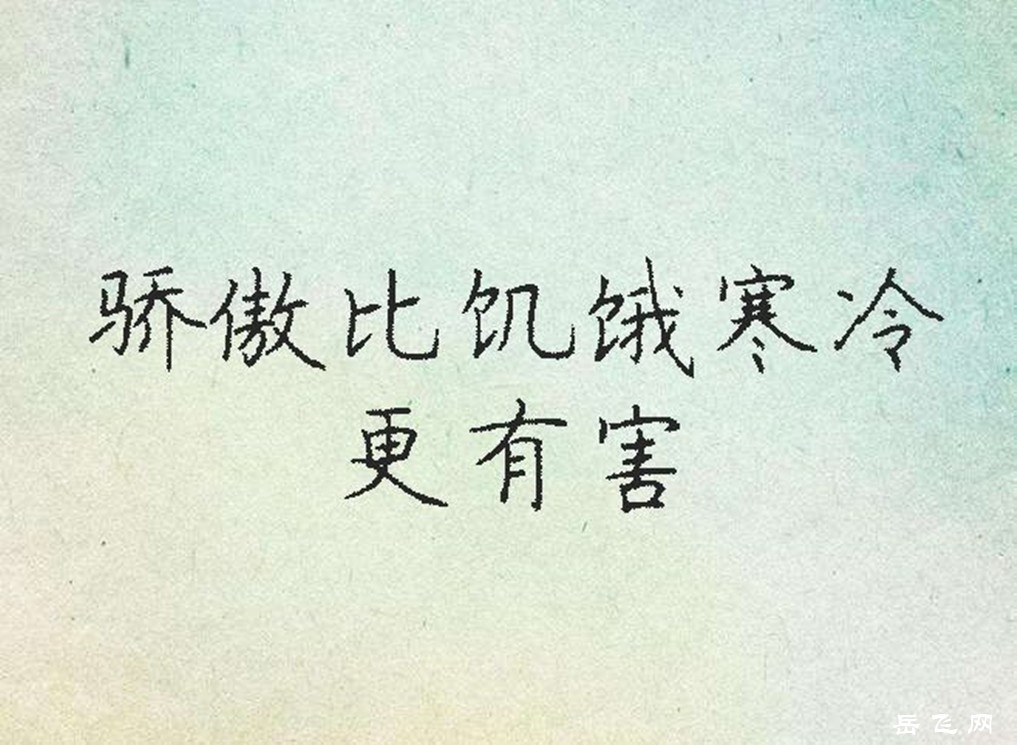 骄傲比饥饿寒冷
更有害
岳飞网